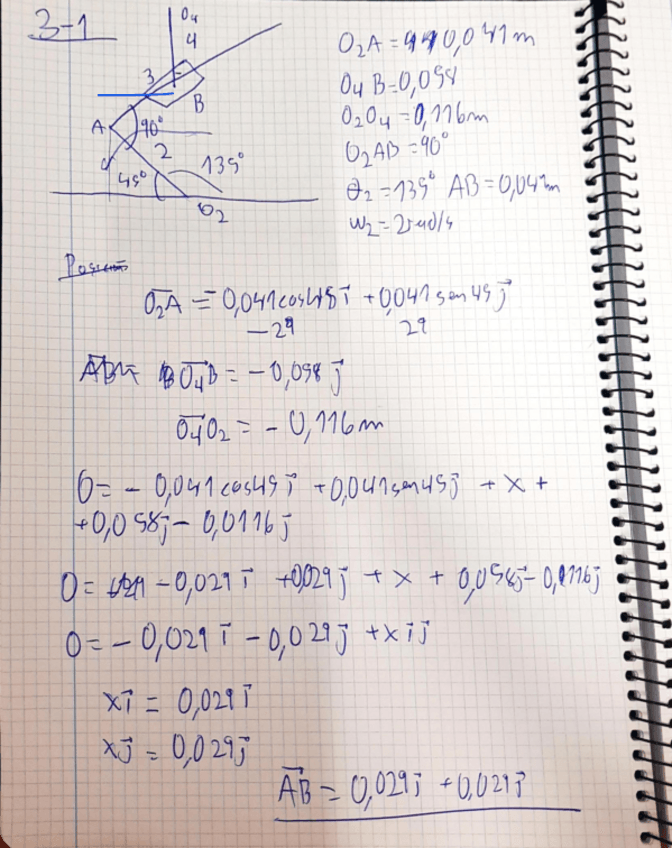 3-1
O4
4
3
B
A
90°
2
135°
45°
O2
O2A = 0,041m
O4 B=0,058
O2O4 = 0,116m
O2AB = 90°
θ2 = 135° AB = 0,041m
ω2 = 2rad/s
Posición
O2A = 0,041cos45 i + 0,041 sen 45 j
-29 29
O4B = - 0,058 j
O4O2 = - 0,116m
0 = - 0,041 cos45 i + 0,041sen45j + x +
+0,058j - 0,0116 j
0 = -0,029 i + 0,029 j + x + 0,058j - 0,0116j
0 = - 0,029 i - 0,029 j + x i j
x i = 0,029 i
x j = 0,029 j
AB = 0,029 i + 0,029 j